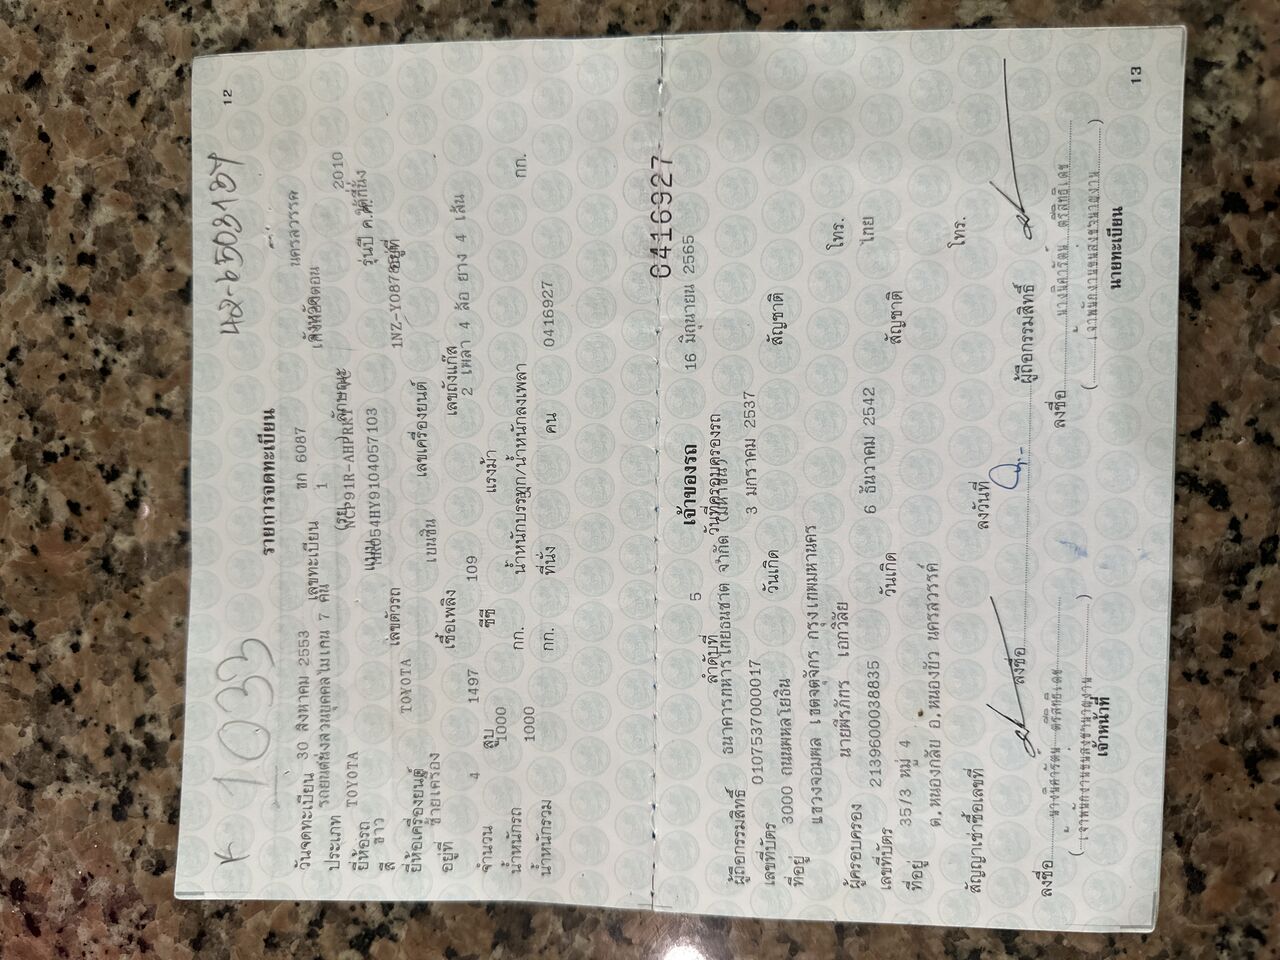 K 1033
402-6508187
12
รายการจดทะเบียน
วันจดทะเบียน 30 สิงหาคม 2553 เลขทะเบียน ขก 6087 จังหวัด นครสวรรค์
ประเภท รถยนต์นั่งส่วนบุคคลไม่เกิน 7 คน (รย. 1 ) ลักษณะ เก๋งสองตอน
ยี่ห้อรถ TOYOTA แบบ NCP91R-AHPRKT รุ่นปี ค.ศ. 2010
สี ขาว เลขตัวรถ MR054HY9104057103 อยู่ที่
ยี่ห้อเครื่องยนต์ TOYOTA เลขเครื่องยนต์ 1NZ-Y0878
อยู่ที่ ซ้ายเครื่อง เชื้อเพลิง เบนซิน เลขถังแก๊ส
จำนวน 4 สูบ 1497 ซีซี 109 แรงม้า 2 เพลา 4 ล้อ ยาง 4 เส้น
น้ำหนักรถ 1000 กก. น้ำหนักบรรทุก/น้ำหนักลงเพลา กก.
น้ำหนักรวม 1000 กก. ที่นั่ง คน 0416927
0416927
เจ้าของรถ
ลำดับที่ 5 วันที่ครอบครองรถ 16 มิถุนายน 2565
ผู้ถือกรรมสิทธิ์ ธนาคารทหารไทยธนชาต จำกัด (มหาชน)
เลขที่บัตร 0107537000017 วันเกิด 3 มกราคม 2537 สัญชาติ
ที่อยู่ 3000 ถนนพหลโยธิน
แขวงจอมพล เขตจตุจักร กรุงเทพมหานคร โทร.
ผู้ครอบครอง นายพีรภัทร เอกวิลัย
เลขที่บัตร 2139600038835 วันเกิด 6 ธันวาคม 2542 สัญชาติ ไทย
ที่อยู่ 35/3 หมู่ 4
ต.หนองกลับ อ.หนองบัว นครสวรรค์ โทร.
สัญญาเช่าซื้อเลขที่ ลงวันที่
ลงชื่อ ผู้ถือกรรมสิทธิ์
ลงชื่อ ลงชื่อ
(เจ้าพนักงานขนส่งชำนาญงาน) (เจ้าพนักงานขนส่งชำนาญงาน)
เจ้าหน้าที่ นายทะเบียน
13